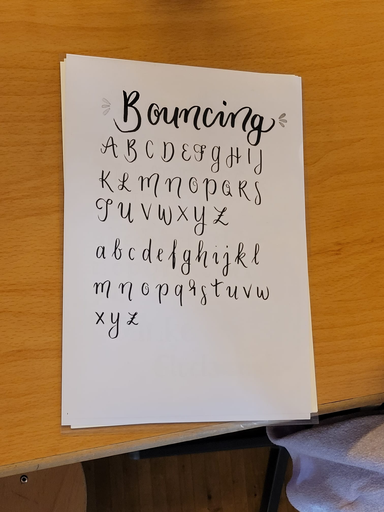 Bouncing
A B C D E F G H I J
K L M N O P Q R S
T U V W X Y Z
a b c d e f g h i j k l
m n o p q r s t u v w
x y z